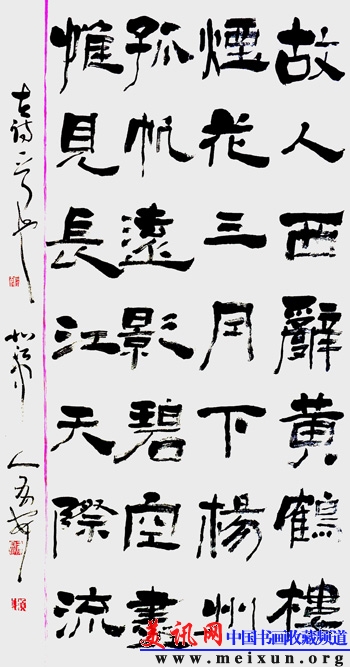 故人西辭黄鶴樓
煙花三月下楊州
孤帆遠影碧空盡
惟見長江天際流
古詩一首
美讯网
中国书画收藏频道
www.meixun.org